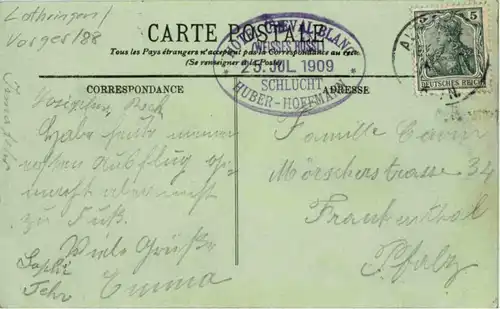 Lothringen/
Vosges/88
CARTE POSTALE
Tous les Pays étrangers n'acceptent pas la Correspondance au recto
(Se renseigner à la Poste)
CHEVAL BLANC
(WEISSES RÖSSL)
25. JUL 1909
SCHLUCHT
HUBER-HOFFMANN
5 5
DEUTSCHES REICH
CORRESPONDANCE
ADRESSE
Habe heute meinen
ersten Ausflug ge-
macht aber nicht
zu Fuß.
Viele Grüße
Emma
Familie
Mörscherstrasse 34
Frankenthal
Pfalz